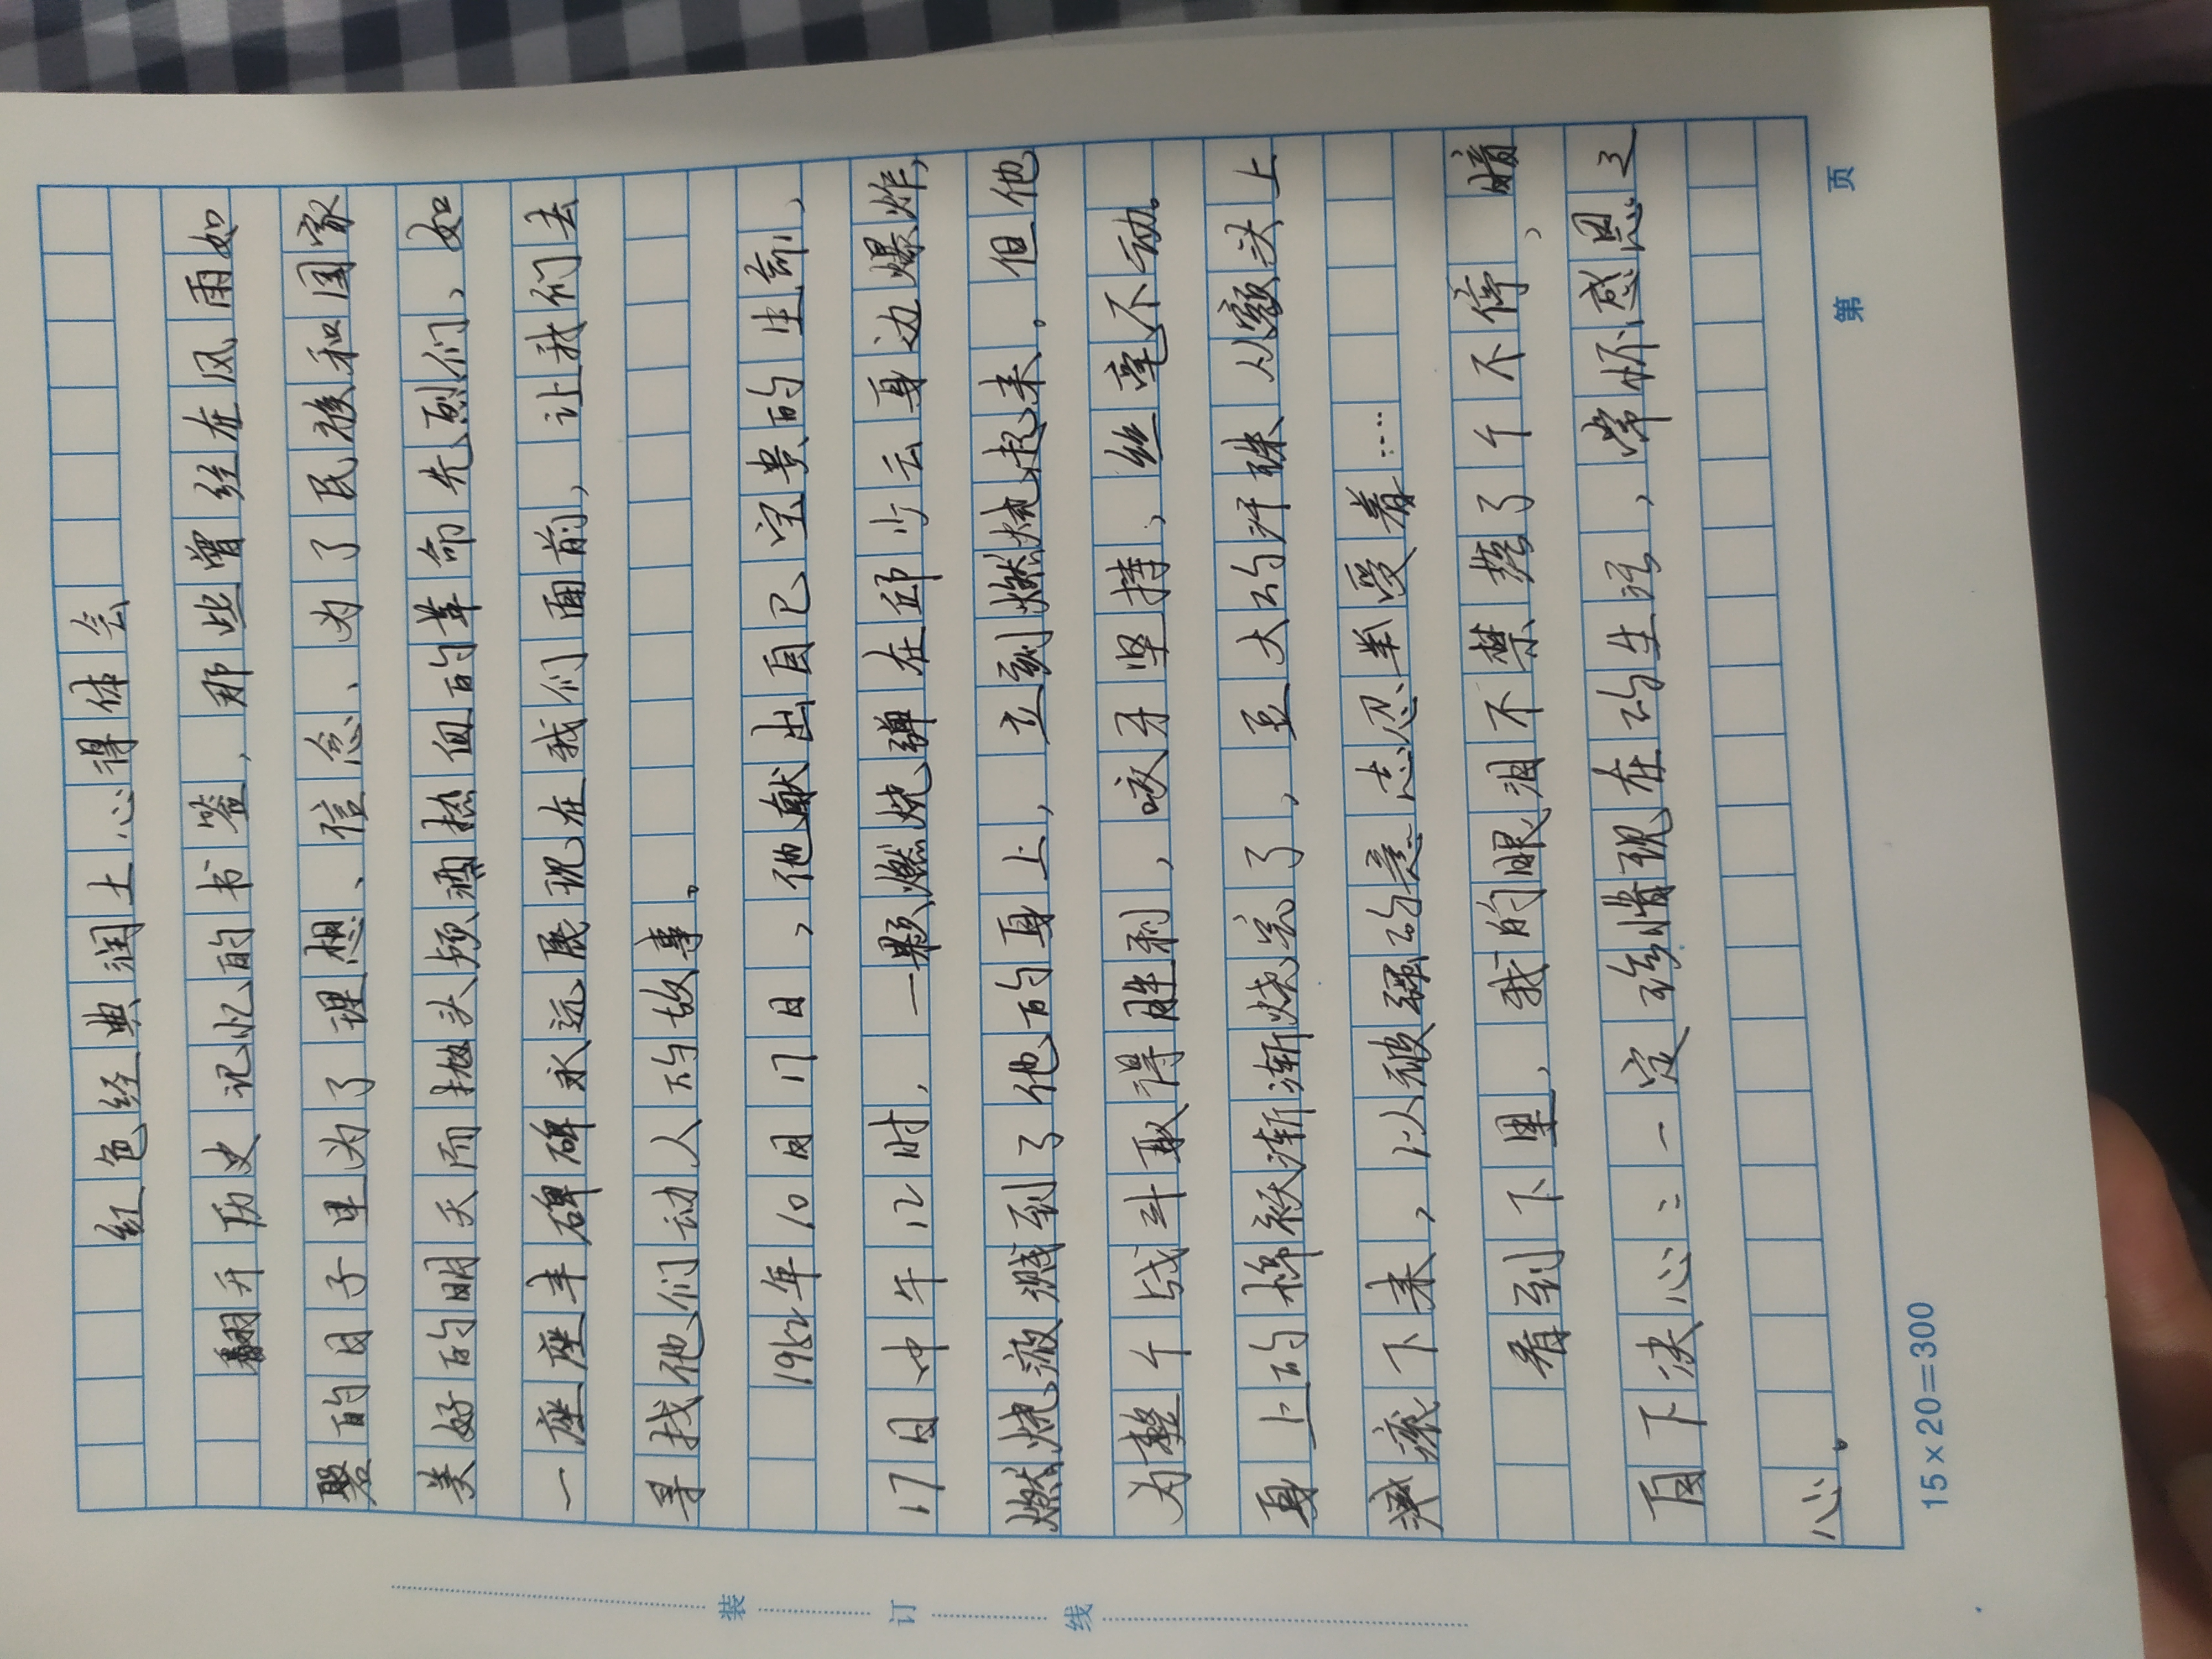 红色经典润土心得体会
翻开历史记忆的书签，那些曾经在风雨如
磐的日子里为了理想、信念、为了民族和国家
美好的明天而抛头颅洒热血的革命先烈们，如
一座座丰碑碑永远展现在我们面前，让我们去
寻找他们动人的故事。
1952年10月17日，他献出自己宝贵的生命，
17日中午12时，一颗燃烧弹在邱少云身边爆炸，
燃烧液溅到了他的身上，立刻燃烧起来。但他
为整个战斗取得胜利，咬牙坚持，丝毫不动。
身上的棉袄渐渐烧完了，豆大的汗珠从额头上
滚下来，以被强的意志忍半受着……
看到下里，我的眼泪不禁落了个不停，暗
自下决心：一定珍惜现在的生活，常怀感恩之
心。
15×20=300
第 页
装 订 线